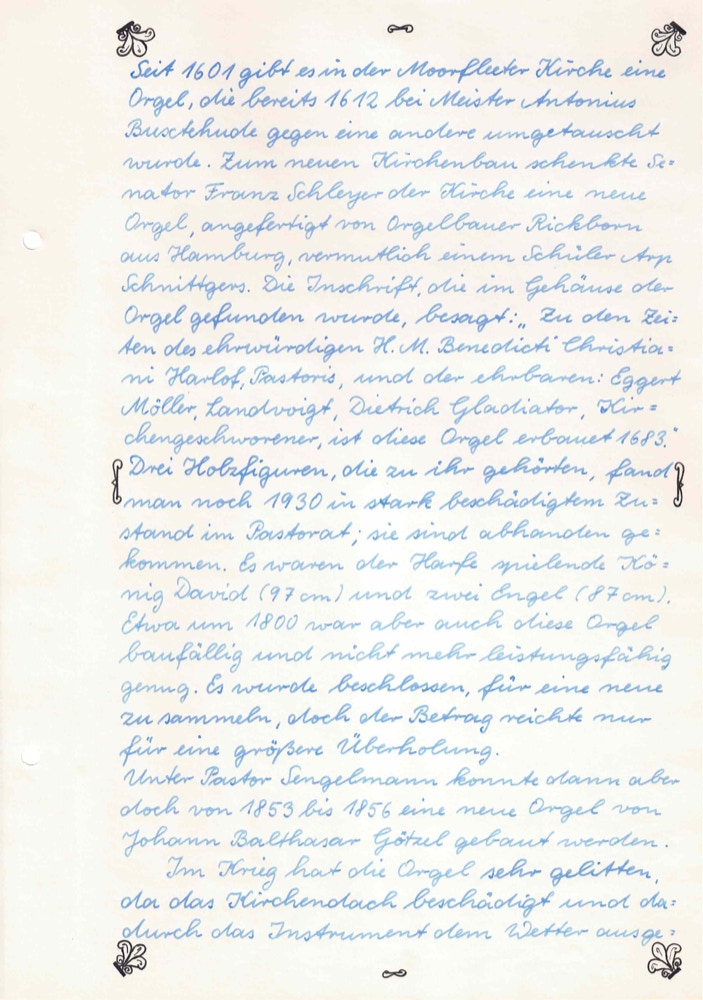 Seit 1601 gibt es in der Moorfleeter Kirche eine
Orgel, die bereits 1612 bei Meister Antonius
Buxtehude gegen eine andere umgetauscht
wurde. Zum neuen Kirchenbau schenkte Se=
nator Franz Schleyer der Kirche eine neue
Orgel, angefertigt von Orgelbauer Rickborn
aus Hamburg, vermutlich einem Schüler Arp
Schnittgers. Die Inschrift, die im Gehäuse der
Orgel gefunden wurde, besagt: „Zu den Zei=
ten des ehrwürdigen H. M. Benedicti Christia=
ni Harlof, Pastoris, und der ehrbaren: Eggert
Möller, Landvoigt, Dietrich Gladiator, Kir=
chengeschworener, ist diese Orgel erbauet 1683."
Drei Holzfiguren, die zu ihr gehörten, fand
man noch 1930 in stark beschädigtem Zu=
stand im Pastorat; sie sind abhanden ge=
kommen. Es waren der Harfe spielende Kö=
nig David (97 cm) und zwei Engel (87 cm).
Etwa um 1800 war aber auch diese Orgel
baufällig und nicht mehr leistungsfähig
genug. Es wurde beschlossen, für eine neue
zu sammeln, doch der Betrag reichte nur
für eine größere Überholung.
Unter Pastor Sengelmann konnte dann aber
doch von 1853 bis 1856 eine neue Orgel von
Johann Balthasar Götzel gebaut werden.
Im Krieg hat die Orgel sehr gelitten,
da das Kirchendach beschädigt und da=
durch das Instrument dem Wetter ausge=